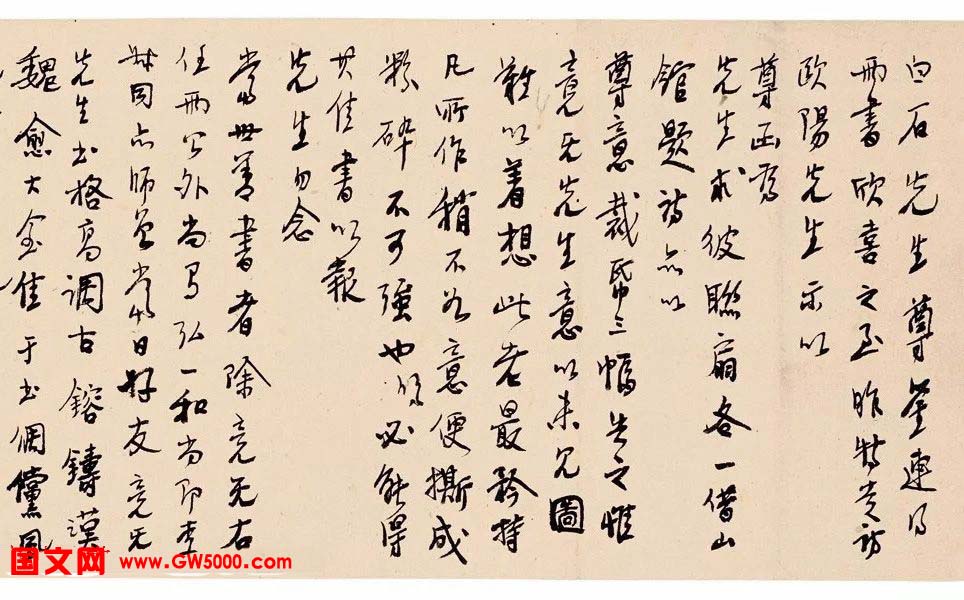 白石先生尊鉴连得
两书欣喜之至昨特走访
欧阳先生示以
尊函为
先生求彼联扇各一借山
馆题诗亦以
尊意裁帋三幅告之惟
竟无先生意以未见图
难以着想此老最矜持
凡所作稍不如意便撕成
粉碎不可强也须必能得
其佳书以报
先生勿念
当世善书者除竟无右
任两公外尚有弘一和尚即李
叔同亦师曾当日好友竟无
先生书格高调古镕铸汉
魏愈大愈佳于书倜傥风
国文网 www.GW5000.com